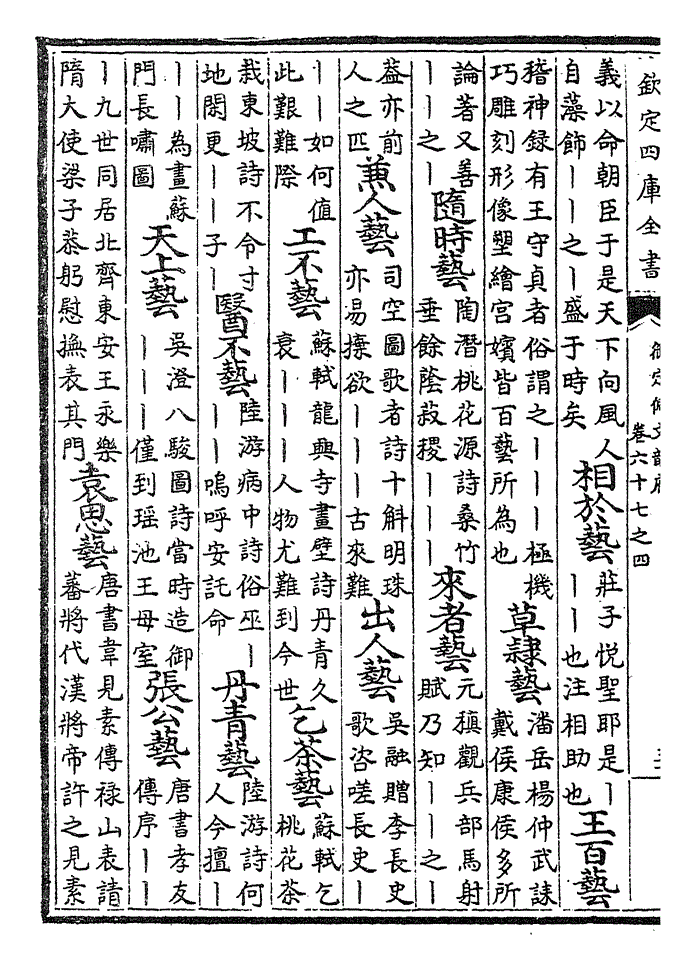 欽定四庫全書
御定佩文韻府
卷六十七之四
義以命朝臣于是天下向風人
自藻飾――之―盛于時矣
相於藝
莊子悅聖耶是―
――也注相助也
王百藝
稽神録有王守貞者俗謂之―――極機
巧雕刻形像塑繪宮嬪皆百藝所為也
草隷藝
潘岳楊仲武誄
戴侯康侯多所
論著又善
――之―
隨時藝
陶潛桃花源詩桑竹
垂餘蔭菽稷―――
來者藝
元稹觀兵部馬射
賦乃知――之―
益亦前
人之匹
兼人藝
司空圖歌者詩十斛明珠
亦易摻欲―――古來難
出人藝
吳融贈李長史
歌咨嗟長史―
――如何值
此艱難際
工不藝
蘇軾龍興寺畫壁詩丹青久
衰―――人物尤難到今世
乞茶藝
蘇軾乞
桃花茶
栽東坡詩不令寸
地閑更――子―
醫不藝
陸游病中詩俗巫―
――嗚呼安託命
丹青藝
陸游詩何
人今擅―
――為畫蘇
門長嘯圖
天上藝
吳澄八駿圖詩當時造御
―――僅到瑶池王母室
張公藝
唐書孝友
傳序――
―九世同居北齊東安王永樂
隋大使梁子恭躬慰撫表其門
袁思藝
唐書韋見素傳禄山表請
蕃將代漢將帝許之見素